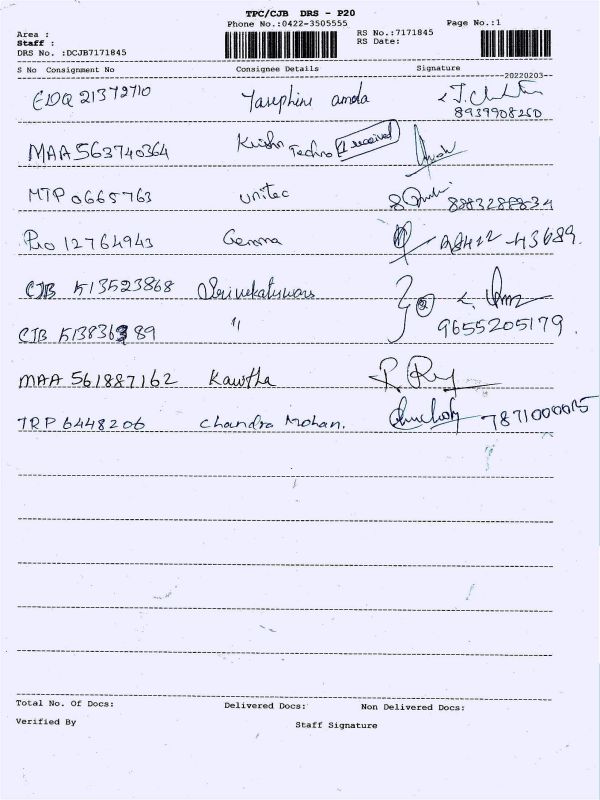 TPC/CJB DRS - P20
Phone No.:0422-3505555 Page No.:1
Area : RS No.:7171845
Staff : RS Date:
DRS No. :DCJB7171845
S No Consignment No Consignee Details Signature
20220203
EDQ 21372710 amala J.
8939908250
MAA 563740364 Krishn Techno 1 received
MTP 0665763 unitec 8883288834
12764943 Gemma
CJB 513523868 Srivekateswara
CJB "
9655205179.
MAA 561887162 Kawtha R. Ry
TRP 6448206 Chandra Mohan.
Total No. Of Docs: Delivered Docs: Non Delivered Docs:
Verified By Staff Signature